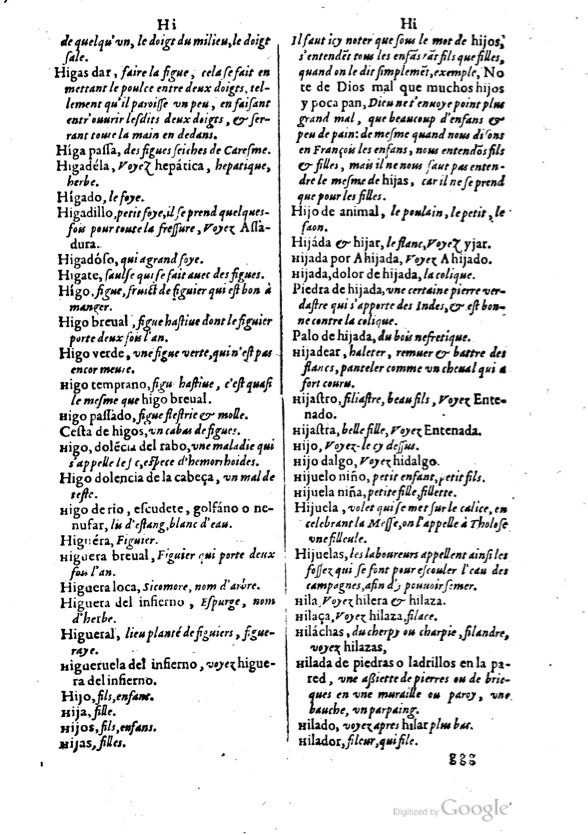 Hi
de quelqu'vn, le doigt du milieu, le doigt
sale.
Higas dar, faire la figue, cela se fait en
mettant le poulce entre deux doigts, tel-
lement qu'il paroisse vn peu, en faisant
entr'ouurir lesdits deux doigts, & ser-
rant toute la main en dedans.
Higa passa, des figues seiches de Caresme.
Higadéla, Voyez hepática, hepatique,
herbe.
Hígado, le foye.
Higadillo, petit foye, il se prend quelques-
fois pour toute la fressure, Voyez Assa-
dura.
Higadóso, qui a grand foye.
Higate, saulse qui se fait auec des figues.
Hígo, figue, fruict de figuier qui est bon à
manger.
Higo breual, figue hastiue dont le figuier
porte deux fois l'an.
Higo verde, vne figue verte, qui n'est pas
encor meure.
Higo temprano, figue hastiue, c'est quasi
le mesme que higo breual.
Higo passado, figue flestrie & molle.
Cesta de higos, vn cabas de figues.
Higo, dolécia del rabo, vne maladie qui
s'appelle le espece d'hemorrhoides.
Higo dolencia de la cabeça, vn mal de
teste.
Higo de rio, escudete, golfáno o ne-
nufar, lis d'estang, blanc d'eau.
Higuéra, Figuier.
Higuera breual, Figuier qui porte deux
fois l'an.
Higuera loca, Sicomore, nom d'arbre.
Higuera del infierno, Espurge, nom
d'herbe.
Higueral, lieu planté de figuiers, figue-
raye.
Higueruela del infierno, voyez higue-
ra del infierno.
Hijo, fils, enfant.
Hija, fille.
Hijos, fils, enfans.
Hijas, filles.
Hi
Il faut icy noter que sous le mot de hijos,
s'entendēt tous les enfās tāt fils que filles,
quand on le dit simplemēt, exemple, No
te de Dios mal que muchos hijos
y poca pan, Dieu ne t'enuoye point plus
grand mal, que beaucoup d'enfans &
peu de pain: de mesme quand nous disons
en François les enfans, nous entendōs fils
& filles, mais il ne nous faut pas enten-
dre le mesme de hijas, car il ne se prend
que pour les filles.
Hijo de animal, le poulain, le petit, le
faon.
Hijáda & hijar, le flanc, Voyez yjar.
Hijada por Ahijada, Voyez Ahijado.
Hijada, dolor de hijada, la colique.
Piedra de hijada, vne certaine pierre ver-
dastre qui s'apporte des Indes, & est bon-
ne contre la colique.
Palo de hijada, du bois nefretique.
Hijadear, haleter, remuer & battre des
flancs, panteler comme vn cheual qui a
fort couru.
Hijastro, filiastre, beau fils, Voyez Ente-
nado.
Hijastra, belle fille, Voyez Entenada.
Hijo, Voyez-le cy dessus.
Hijo dalgo, Voyez hidalgo.
Hijuelo niño, petit enfant, petit fils.
Hijuela niña, petite fille, fillette.
Hijuela, volet qui se met sur le calice, en
celebrant la Messe, on l'appelle à Tholose
vne filleule.
Hijuelas, les laboureurs appellent ainsi les
fossez qui se font pour escouler l'eau des
campagnes, afin d'y pouuoir semer.
Hila, Voyez hilera & hilaza.
Hilaça, Voyez hilaza, filace.
Hiláchas, du cherpy ou charpie, filandre,
voyez hilazas,
Hilada de piedras o ladrillos en la pa-
red, vne assiette de pierres ou de bric-
ques en vne muraille ou paroy, vne
bauche, vn parpaing.
Hilado, voyez apres hilar plus bas.
Hilador, fileur, qui file.
ggg
Digitized by Google